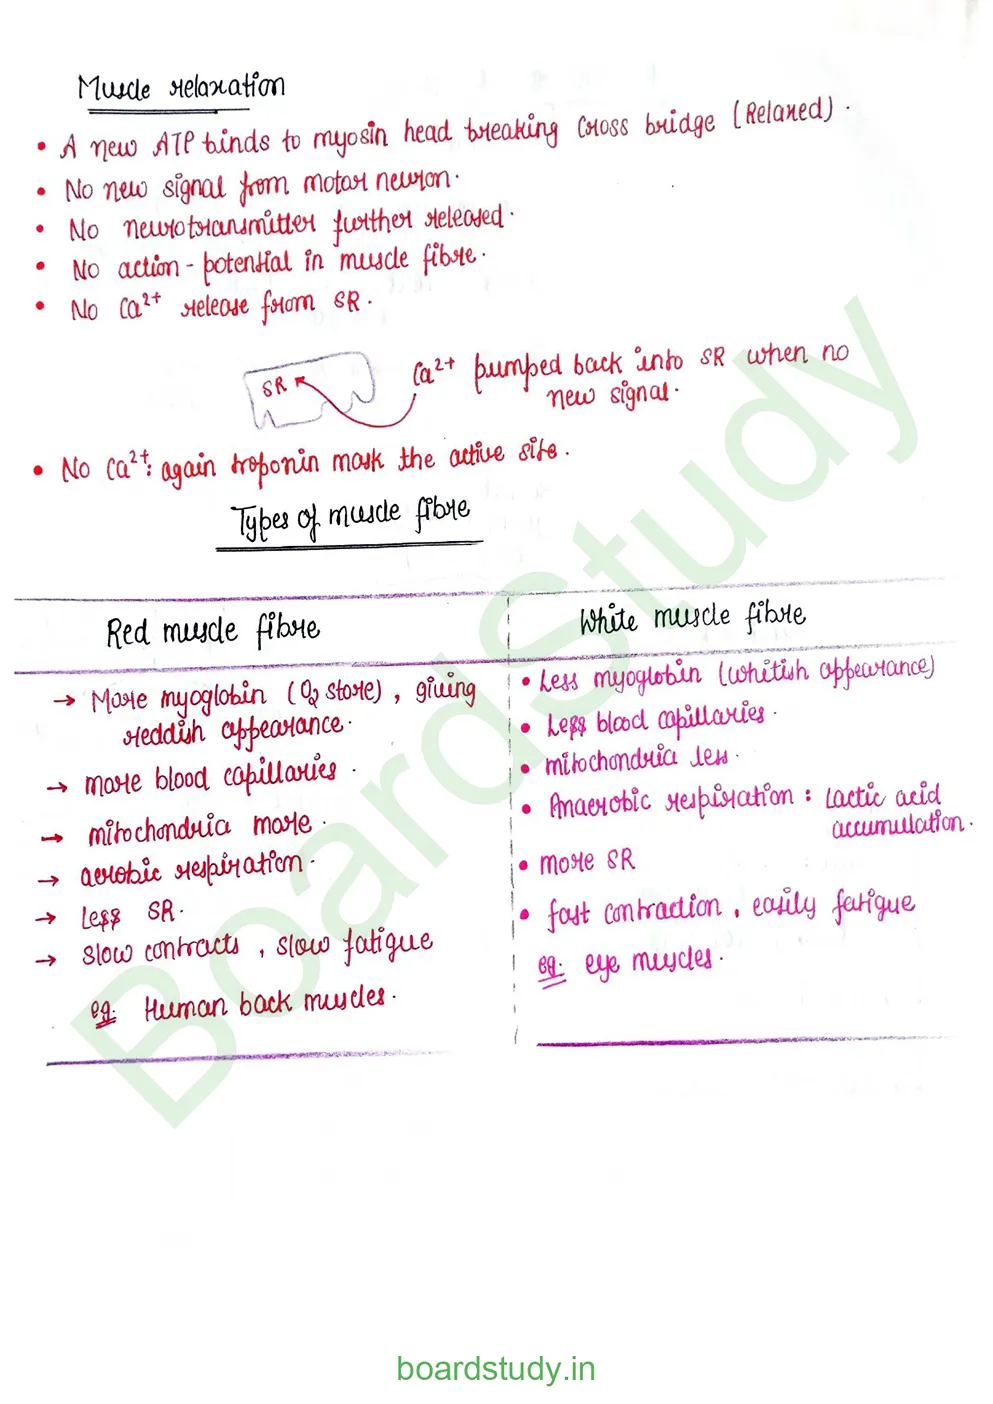 Muscle relaxation
• A new ATP binds to myosin head breaking cross bridge (Relaxed).
• No new signal from motor neuron.
• No neurotransmitter further released.
• No action-potential in muscle fibre.
• No Ca²⁺ release from SR.
SR
Ca²⁺ pumped back into SR when no
new signal.
• No Ca²⁺: again troponin mask the active site.
Types of muscle fibre
Red muscle fibre
→ More myoglobin (O₂ store), giving
reddish appearance.
→ more blood capillaries.
→ mitochondria more.
→ aerobic respiration.
→ Less SR.
→ slow contracts, slow fatigue
eg. Human back muscles.
White muscle fibre
• Less myoglobin (whitish appearance)
• Less blood capillaries.
• mitochondria less.
• Anaerobic respiration : Lactic acid
accumullation.
• more SR
• fast contraction, easily fatigue
eg. eye muscles.
BoardStudy
boardstudy.in